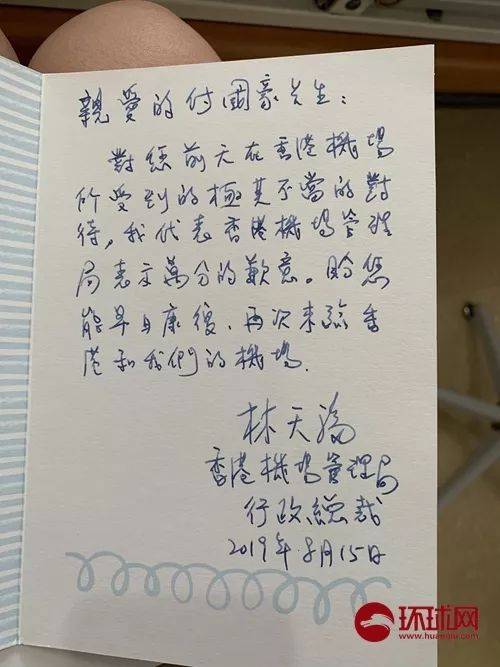 親愛的付國豪先生：
對您前天在香港機場
所受到的極其不當的對
待，我代表香港機場管理
局表示萬分的歉意。盼您
能早日康復、再次來臨香
港和我們的機場.
林天福
香港機場管理局
行政總裁
2019年8月15日
环球网
www.huanqiu.com